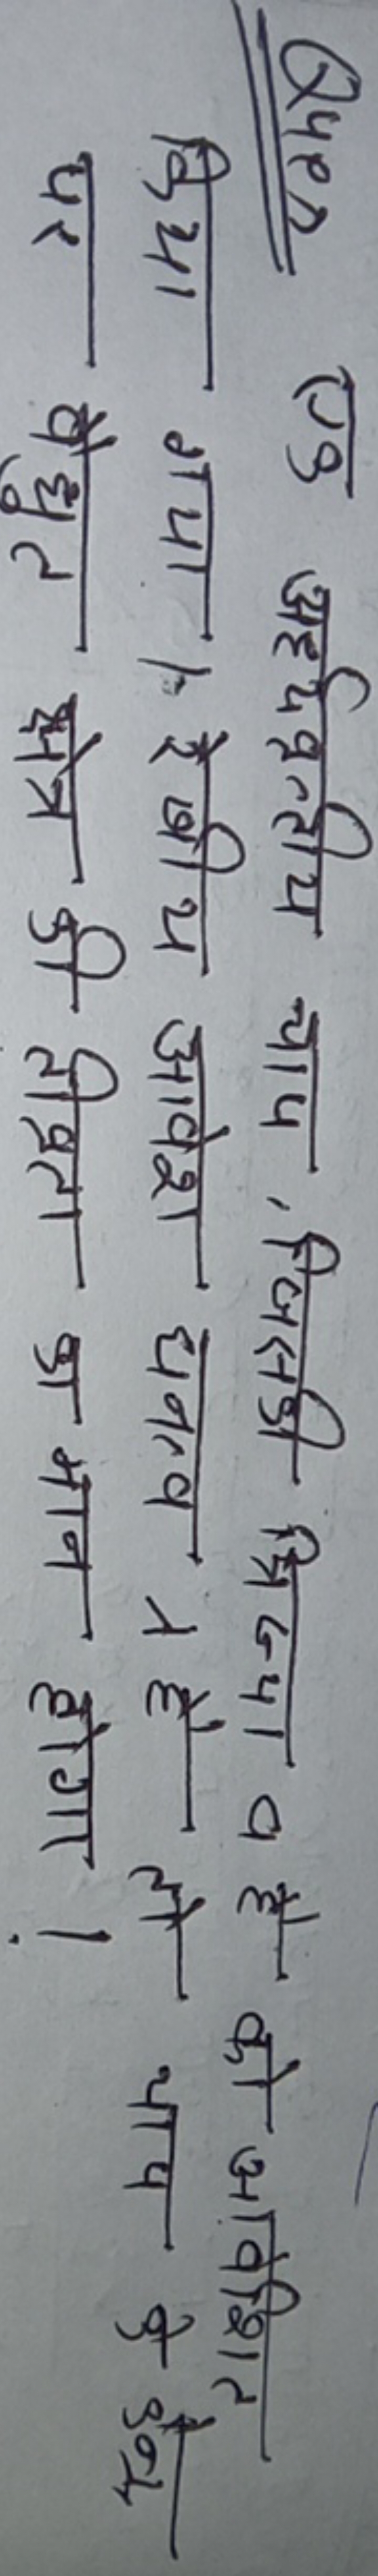 Ques एक अर्धवृत्तीय चाप, जिसकी त्रिज्या a है को आवेशित
किया गया । रेखीय आवेश घनत्व λ है तो चाप के केन्द्र
पर वैद्युत क्षेत्र की तीव्रता का मान होगा !